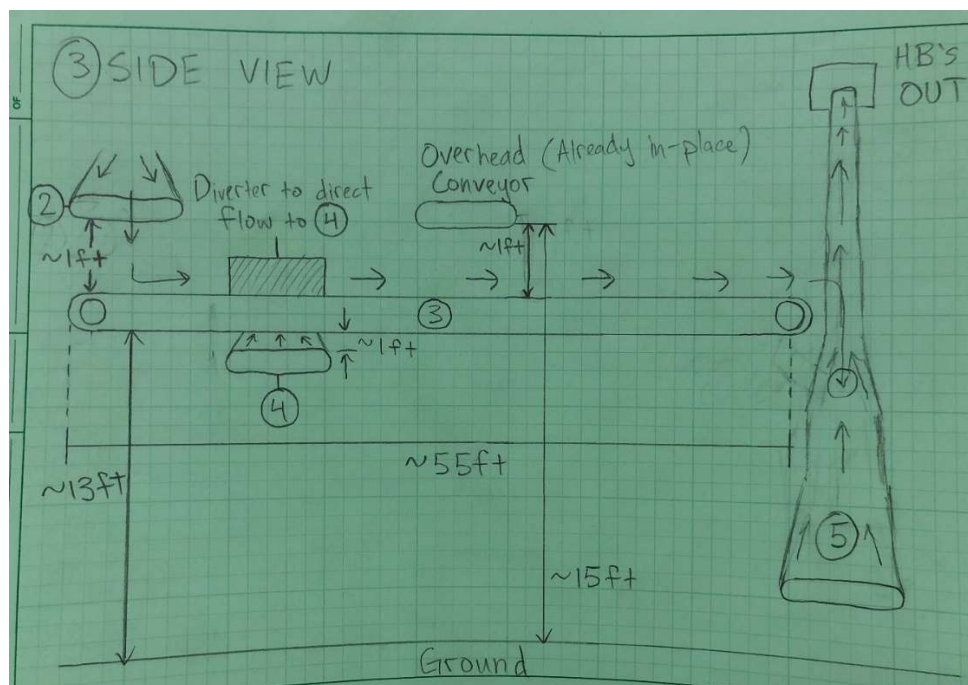 ③ SIDE VIEW
HB's
OUT
Overhead (Already in-place)
Conveyor
②
Diverter to direct
flow to ④
~1ft
~1ft
③
~1ft
④
~55ft
~13ft
⑤
~15ft
Ground
OF